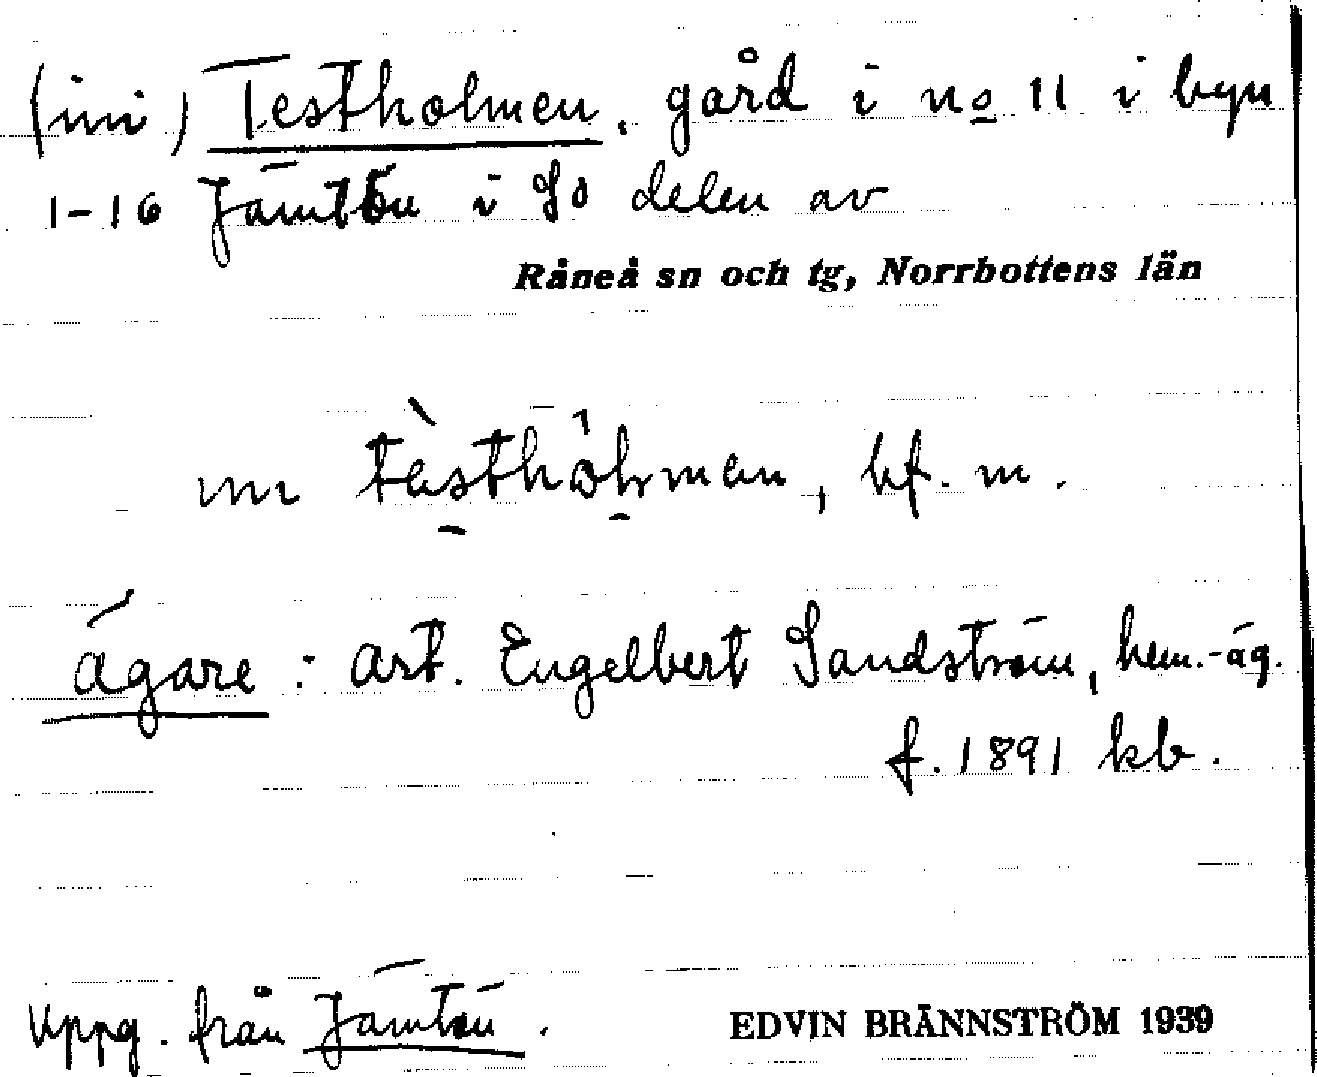 (ini) Testholmen, gård i no 11 i byn
1-16 Jämtön i SO delen av
Råneå sn och tg, Norrbottens län
bf. m.
Ägare: Art. Engelbert Sandström, hem.-äg.
f. 1891 kb.
Uppg. från Jämtön.
EDVIN BRÄNNSTRÖM 1939